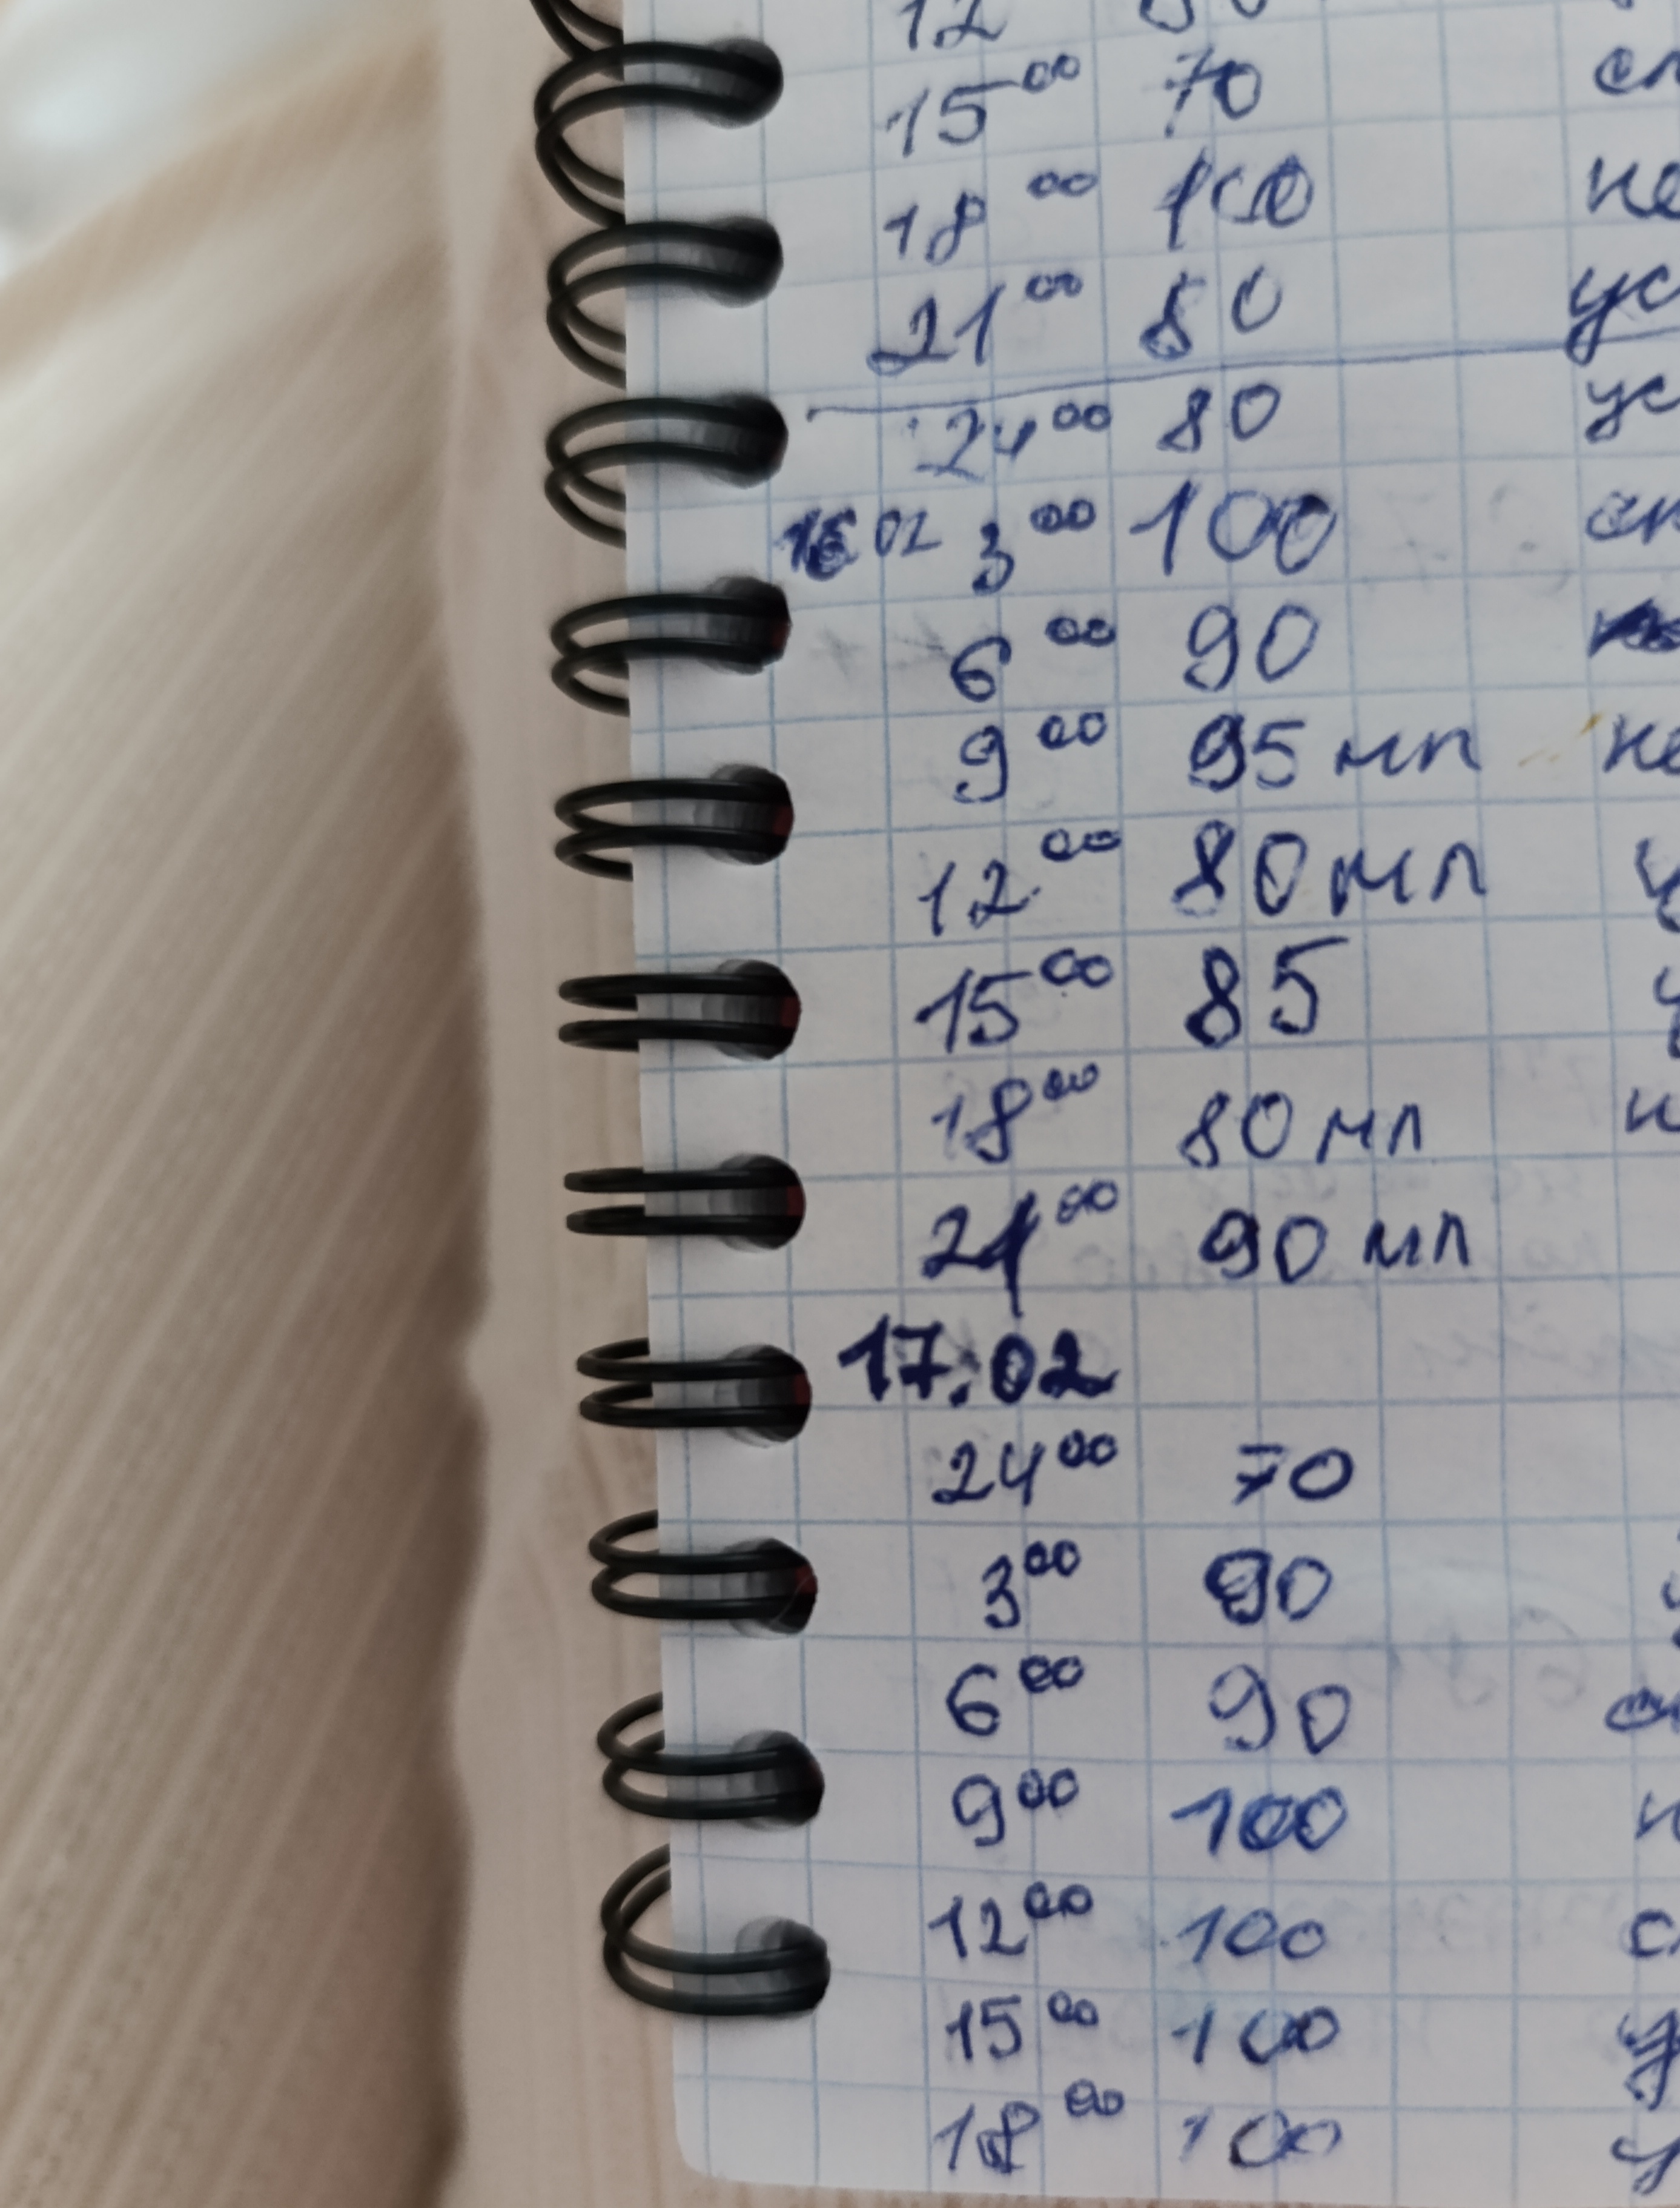 12
15 00 70
18 00 100
21 00 80
24 00 80
16 02 3 00 100
6 00 90
9 00 95 мл
12 00 80 мл
15 00 85
18 00 80 мл
21 00 90 мл
17.02
24 00 70
3 00 90
6 00 90
9 00 100
12 00 100
15 00 100
18 00 100